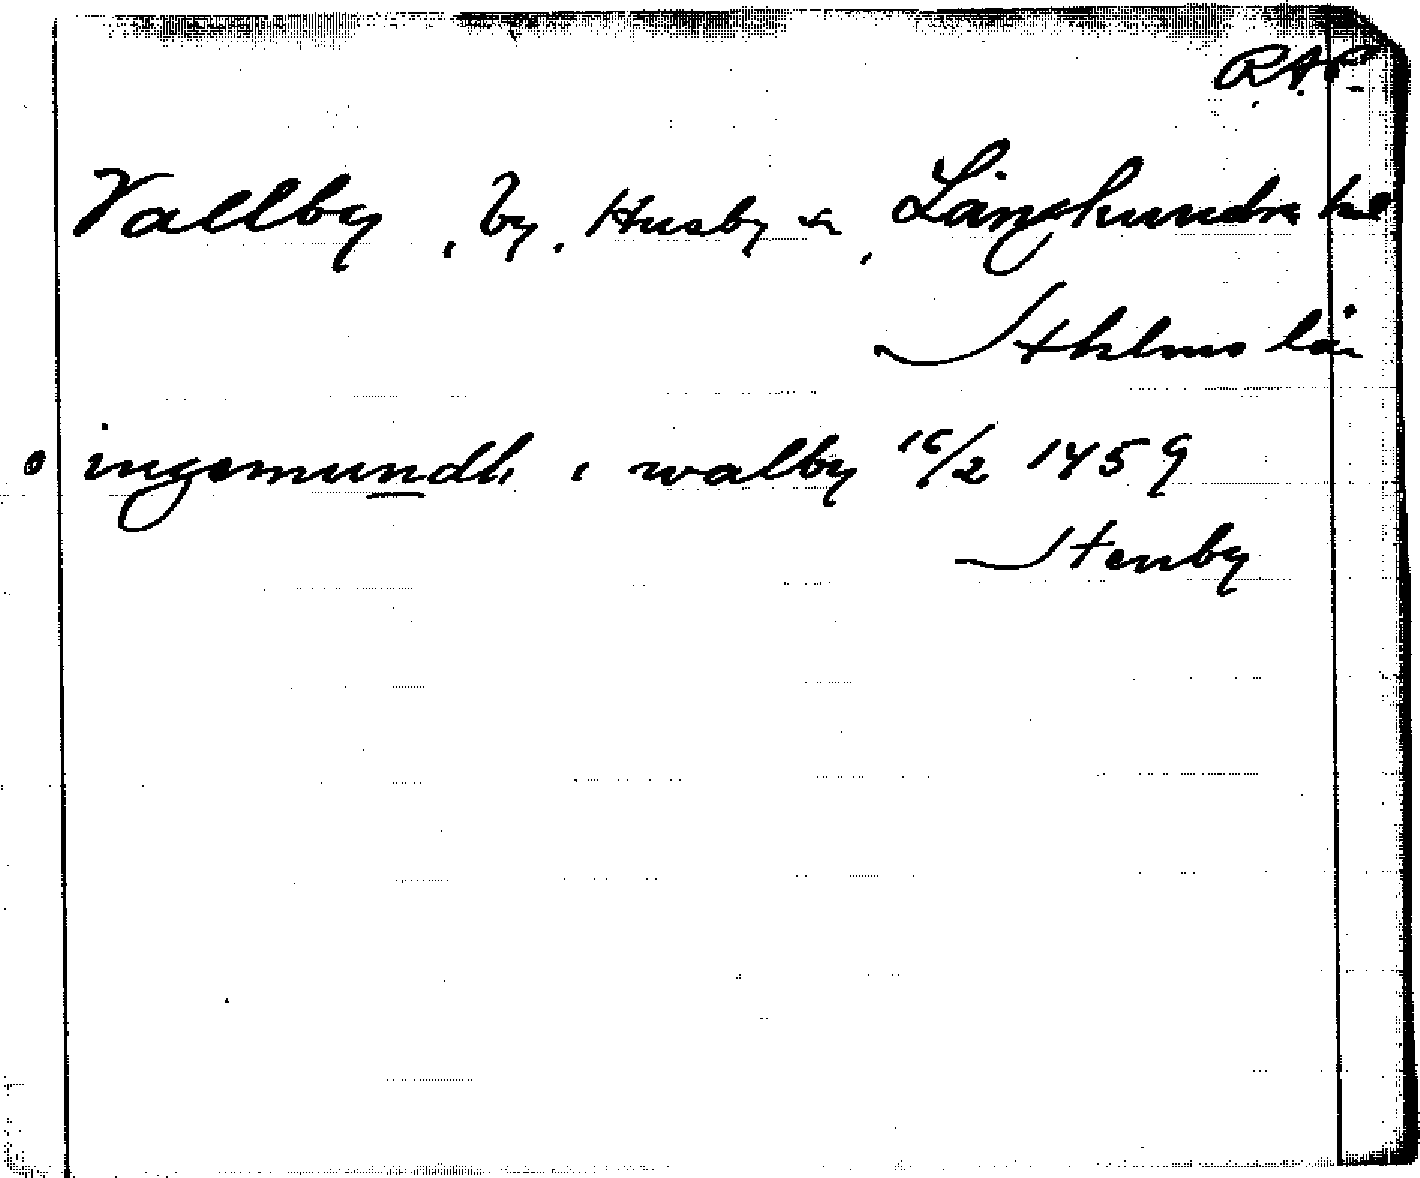 RAP
Vallby, by, Husby sn, Långhundra hd
Sthlms län
o ingemundh i walby 16/2 1459
Stenby